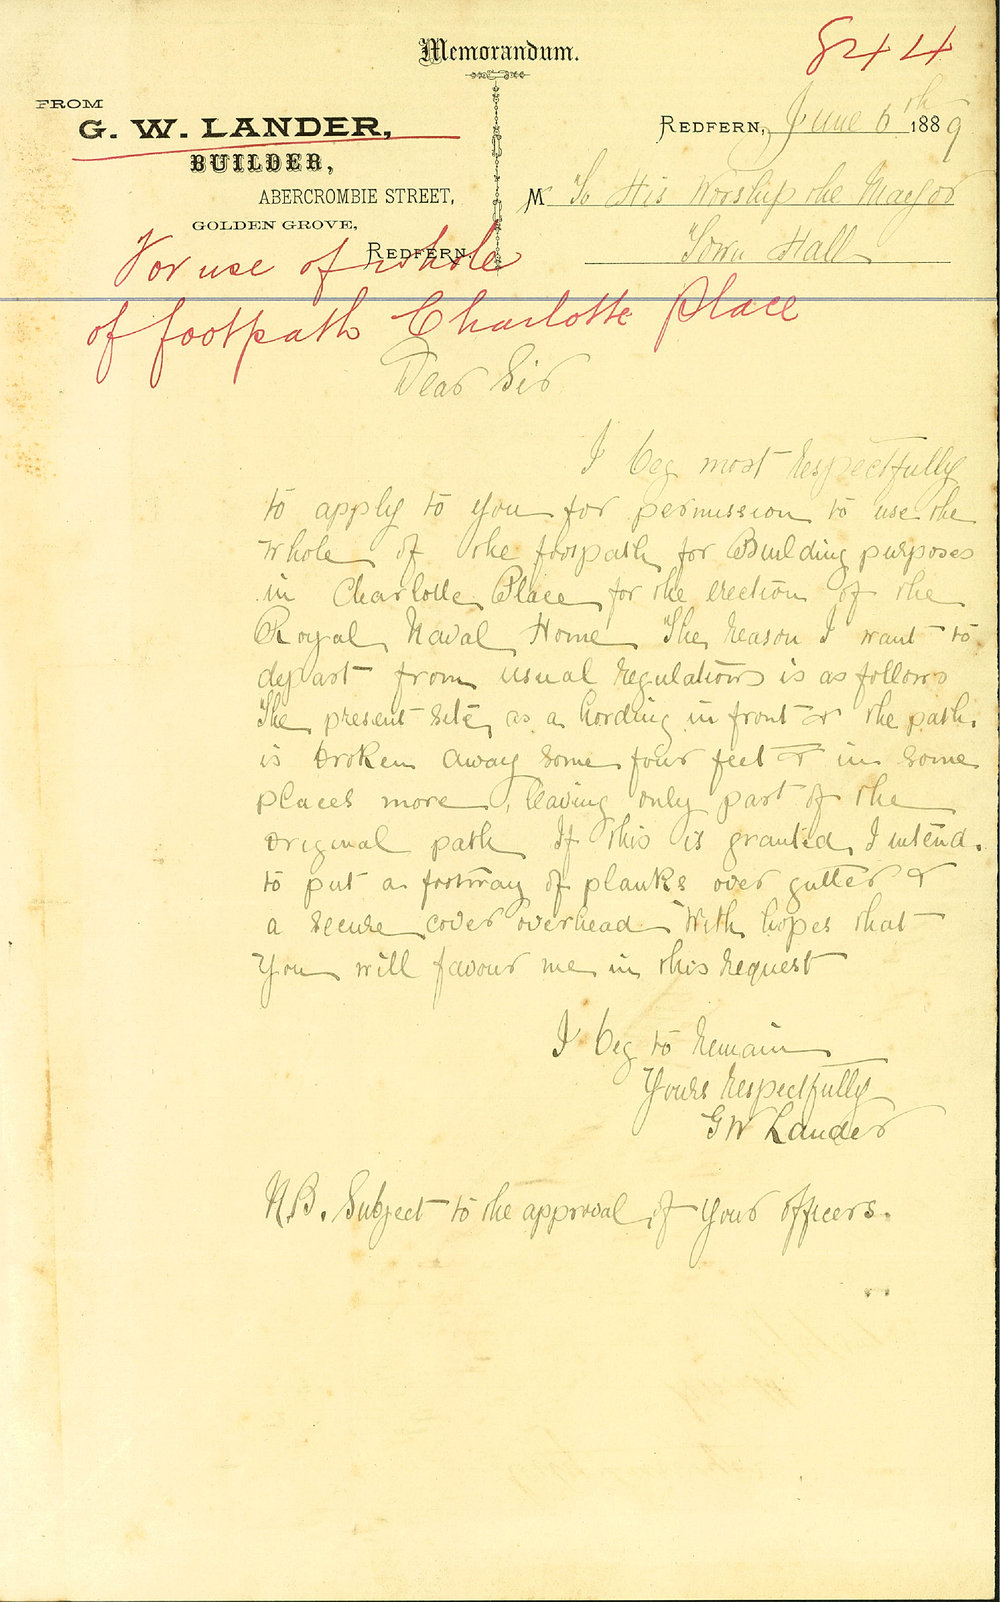 Memorandum.
844
FROM
G. W. LANDER,
BUILDER,
ABERCROMBIE STREET,
GOLDEN GROVE,
REDFERN.
REDFERN, June 6th 1889
M To His Worship the Mayor
Town Hall
For use of whole
of footpath Charlotte Place
Dear Sir
I beg most respectfully
to apply to you for permission to use the
whole of the footpath for Building purposes
in Charlotte Place for the erection of the
Royal Naval Home The reason I want to
depart from usual regulations is as follows
The present site as a hording in front & the path
is broken away some four feet & in some
places more, leaving only part of the
original path If this is granted, I intend.
to put a footway of planks over gutter &
a secure cover overhead With hopes that
you will favour me in this request
I beg to remain
Yours respectfully
G W Lander
N.B. Subject to the approval of your officers.